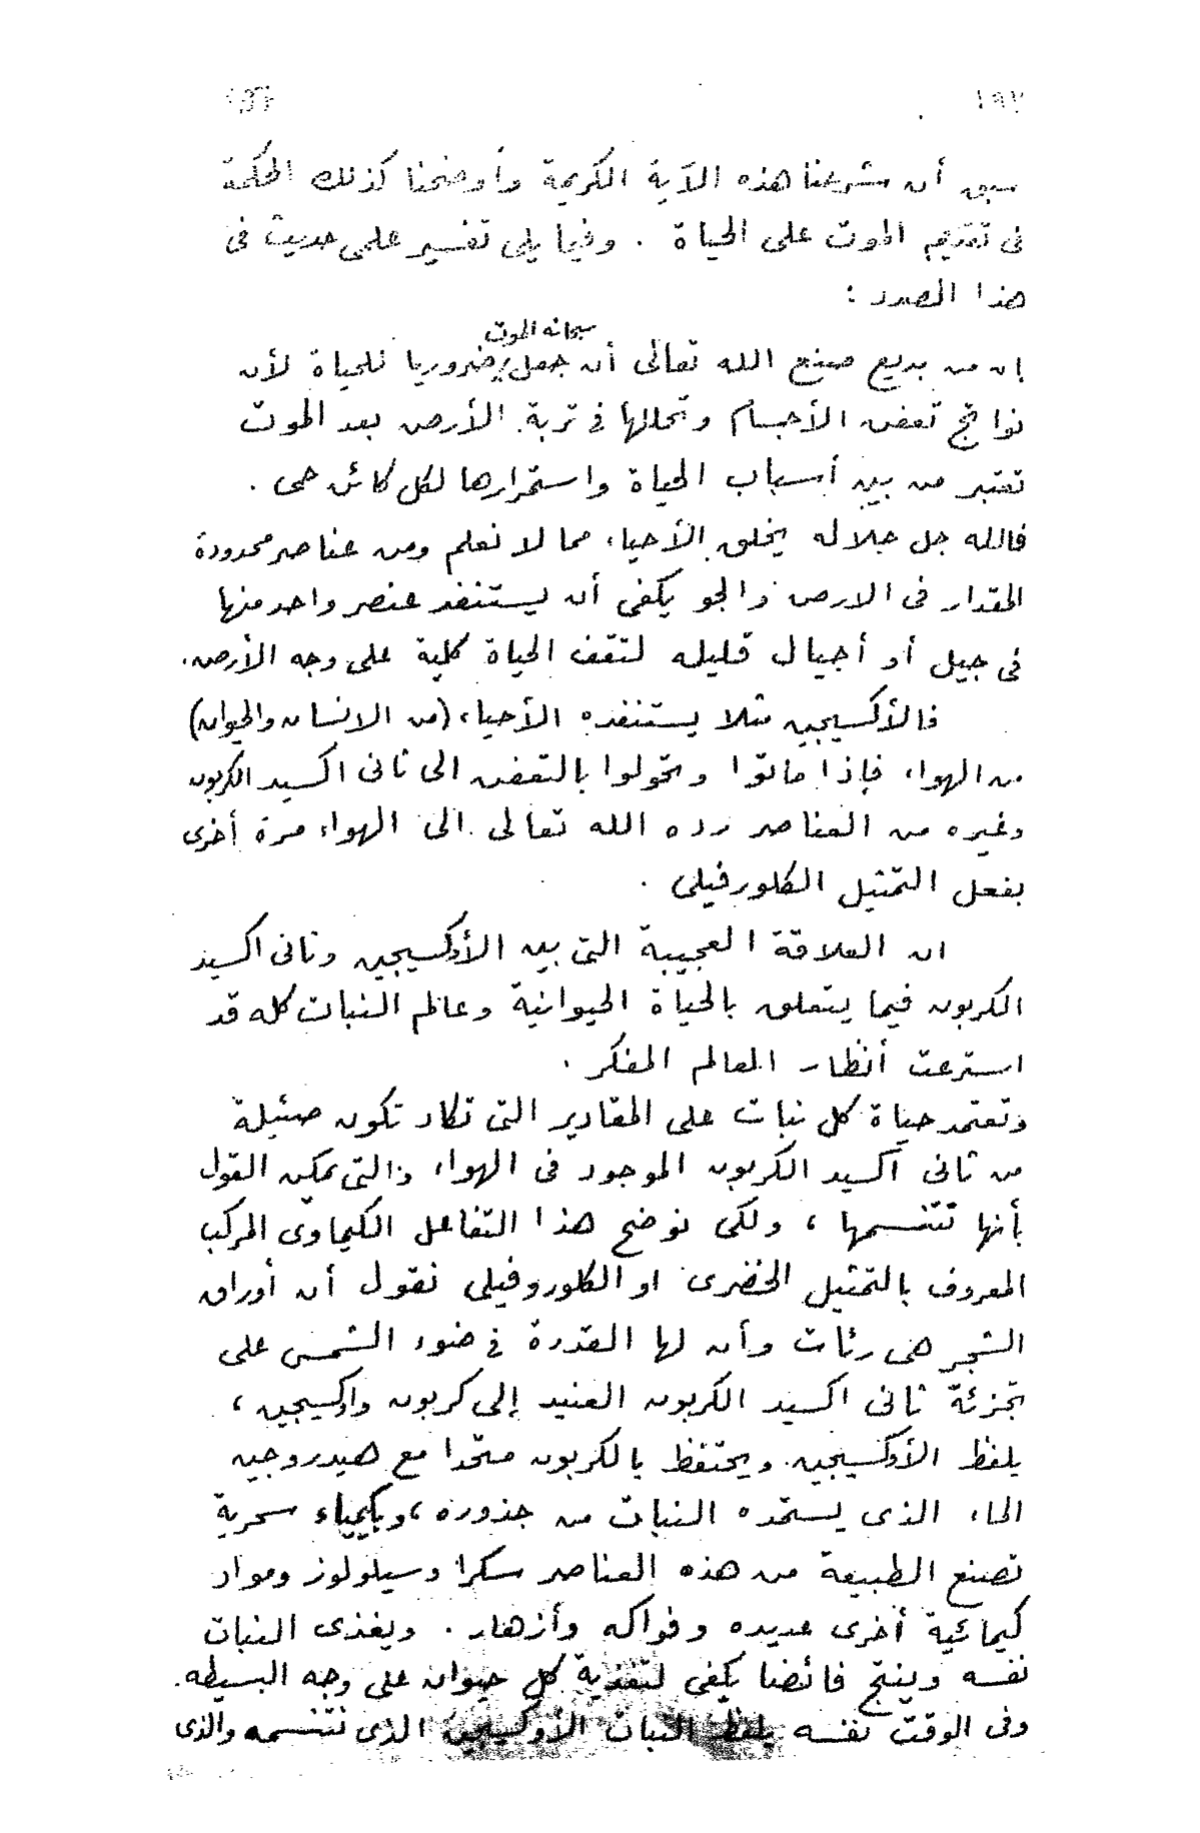 ١٩٢
سبق أن شرحنا هذه الآية الكريمة وأوضحنا كذلك الحكمة
فى تقديم الموت على الحياة . وفيما يلى تفسير علمى حديث فى
هذا الصدد :
سبحانه الموت
إن من بديع صنع الله تعالى أن جعل ضروريا للحياة لأن
نواتج تعفن الأجسام وتحللها فى تربة الأرض بعد الموت
تعتبر من بين أسباب الحياة واستمرارها لكل كائن حى .
فالله جل جلاله يخلق الأحياء مما لا نعلم ومن عناصر محدودة
المقدار فى الارض والجو يكفى أن يستنفد عنصر واحد منها
فى جيل أو أجيال قليله لتقف الحياة كلية على وجه الأرض.
فالأكسيجين مثلا يستنفده الأحياء (من الانسان والحيوان)
من الهواء فإذا ماتوا وتحولوا بالتعفن الى ثانى اكسيد الكربون
وغيره من العناصر رده الله تعالى الى الهواء مرة أخرى
بفعل التمثيل الكلورفيلى .
ان العلاقة العجيبة التى بين الأوكسيجين وثانى اكسيد
الكربون فيما يتعلق بالحياة الحيوانية وعالم النبات كله قد
استرعت أنظار العالم المفكر .
وتعتمد حياة كل نبات على المقادير التى تكاد تكون ضئيلة
من ثانى أكسيد الكربون الموجود فى الهواء والتى يمكن القول
بأنها تتنسمها ، ولكى نوضح هذا التفاعل الكيماوى المركب
المعروف بالتمثيل الخضرى او الكلوروفيلى نقول أن أوراق
الشجر هى رئات وأن لها القدرة فى ضوء الشمس على
تجزئة ثانى اكسيد الكربون العنيد إلى كربون واوكسيجين ،
يلفظ الأوكسيجين ويحتفظ بالكربون متحدا مع هيدروجين
الماء الذى يستمده النبات من جذوره ، وبكيمياء سحرية
تصنع الطبيعة من هذه العناصر سكرا وسيلولوز ومواد
كيمائية أخرى عديده وفواكه وأزهار . ويغذى النبات
نفسه وينتج فائضا يكفى لتغذية كل حيوان على وجه البسيطه.
وفى الوقت نفسه يلفظ النبات الأوكسيجين الذى نتنسمه والذى